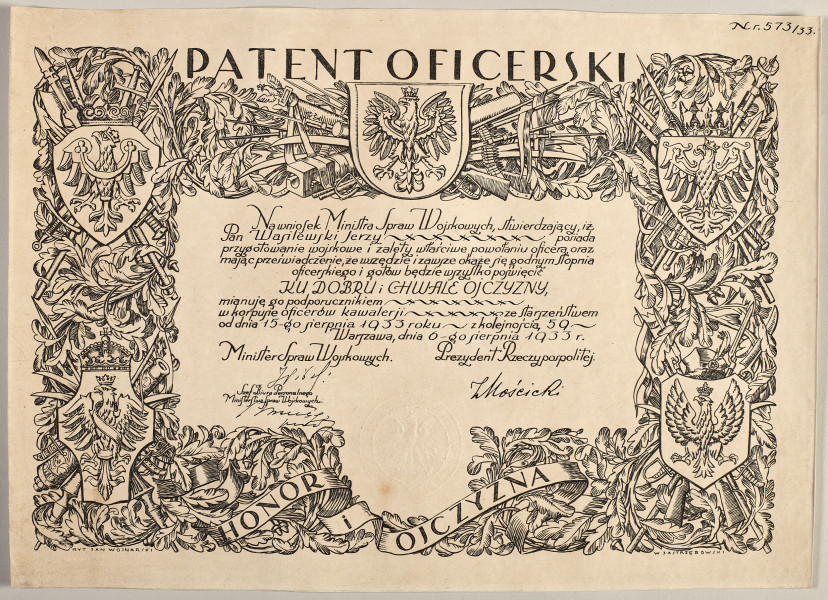 Nr. 573/33.
PATENT OFICERSKI
Na wniosek Ministra Spraw Wojskowych, stwierdzający, iż
Pan Wasilewski Jerzy posiada
przygotowanie wojskowe i zalety właściwe powołaniu oficera, oraz
mając przeświadczenie, że wszędzie i zawsze okaże się godnym stopnia
oficerskiego i gotów będzie wszystko poświęcić
KU DOBRU i CHWALE OJCZYZNY,
mianuję go podporucznikiem
w korpusie oficerów kawalerji ze starszeństwem
od dnia 15-go sierpnia 1933 roku z kolejnością 59
Warszawa, dnia 6-go sierpnia 1933 r.
Minister Spraw Wojskowych. Prezydent Rzeczypospolitej.
I Mościcki
Szef Biura Personalnego
Ministerstwa Spraw Wojskowych
HONOR i OJCZYZNA
RYT JAN WOJNARSKI
W. JASTRZĘBOWSKI